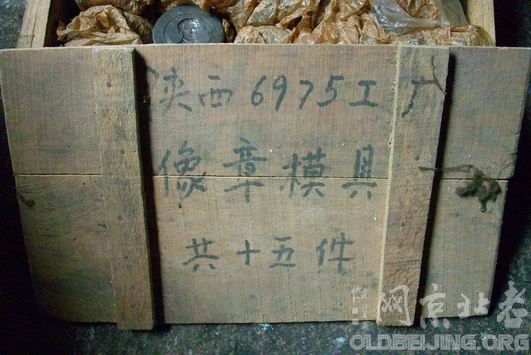 陕西6975工厂
像章模具
共十五件
老北京网
OLDBEIJING.ORG